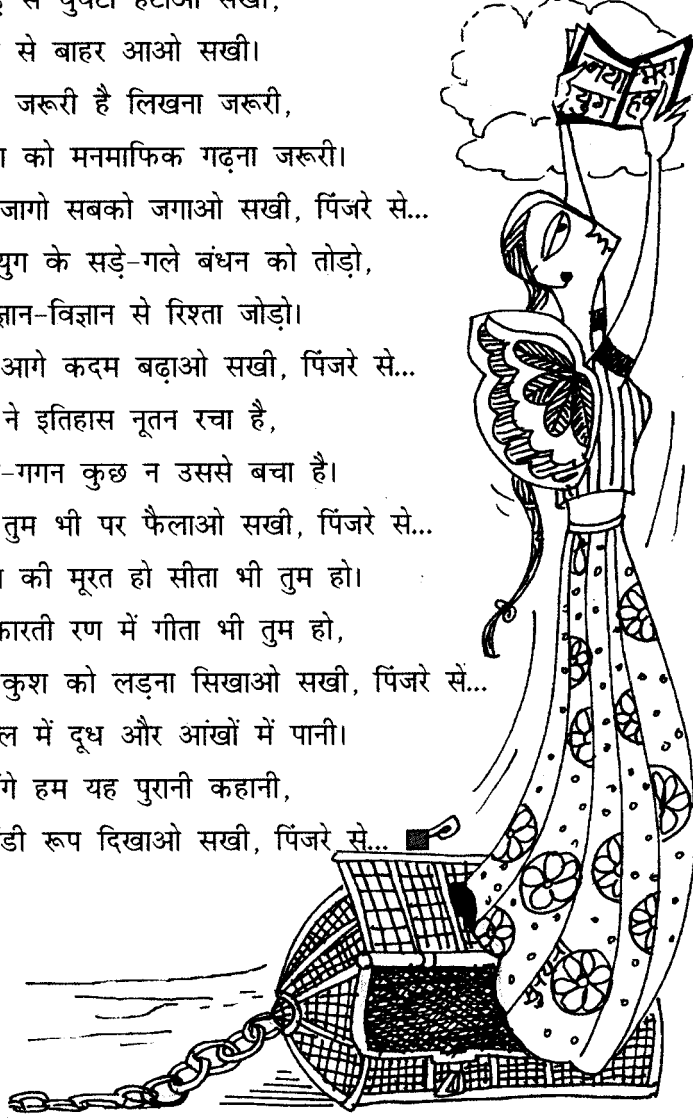 से घुंघटा हटाओ सखी,
से बाहर आओ सखी।
जरूरी है लिखना जरूरी,
को मनमाफिक गढ़ना जरूरी।
जागो सबको जगाओ सखी, पिंजरे से...
युग के सड़े-गले बंधन को तोड़ो,
ज्ञान-विज्ञान से रिश्ता जोड़ो।
आगे कदम बढ़ाओ सखी, पिंजरे से...
ने इतिहास नूतन रचा है,
-गगन कुछ न उससे बचा है।
तुम भी पर फैलाओ सखी, पिंजरे से...
की मूरत हो सीता भी तुम हो।
कारती रण में गीता भी तुम हो,
कुश को लड़ना सिखाओ सखी, पिंजरे से...
ल में दूध और आंखों में पानी।
गे हम यह पुरानी कहानी,
डी रूप दिखाओ सखी, पिंजरे से...
नया युग
मेरा हक